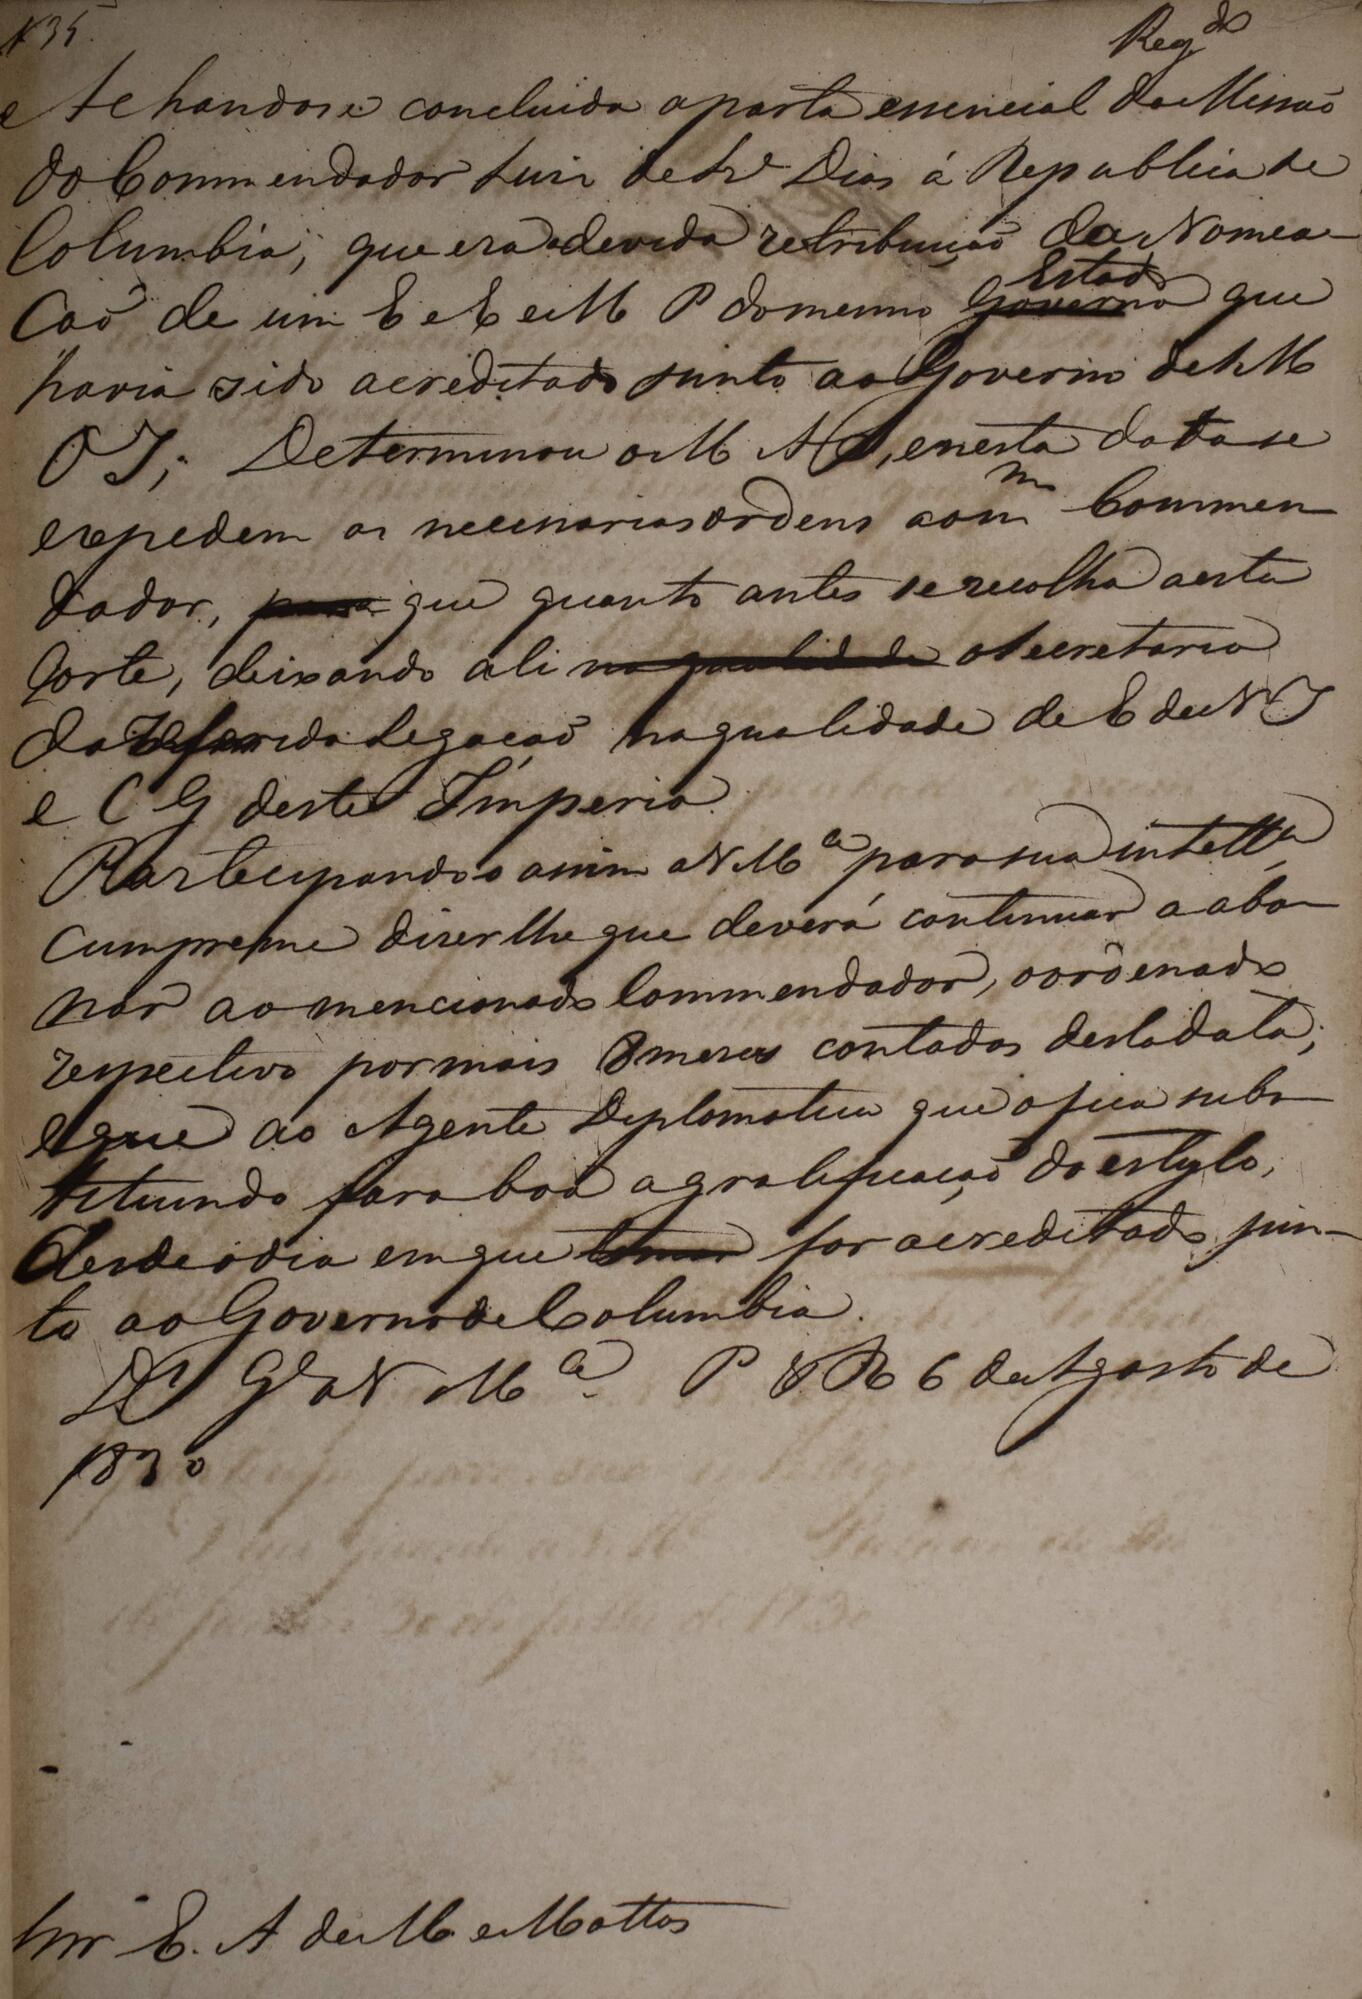 N 35.
Reg.do
Achandose concluida a parte essencial da Missaõ
do Commendador Luiz de Sz.ª Dias á Republica de
Columbia, que era a devida retribuiçaõ da Nomea-
caõ de um E e E e M P do mesmo Governo Estado que
havia sido acreditado junto ao Governo de S M
O I; Determinou o M A S, e nesta data se
expedem as necessarias ordens ao m.mo Commen-
dador, para que quanto antes se recolha a esta
Corte, deixando ali na qualidade o Secretario
da referida Legacaõ na qualidade de E de N I
e C G deste Império.
Participando o assim a V M.ce para sua intell.ª
cumpreme dizerlhe que deverá continuar a abo-
nar ao mencionado Commendador, o ordenado
respectivo por mais 8 meses contados desta data;
e que ao Agente Diplomatico que o fica subs-
tituindo fara boa a gratificaçaõ do estylo,
desde o dia em que tomar for acreditado jun-
to ao Governo de Columbia.
D.s G.e a V M.ce P do R 6 de Agosto de
1830
Snr E. A de M e Mattos